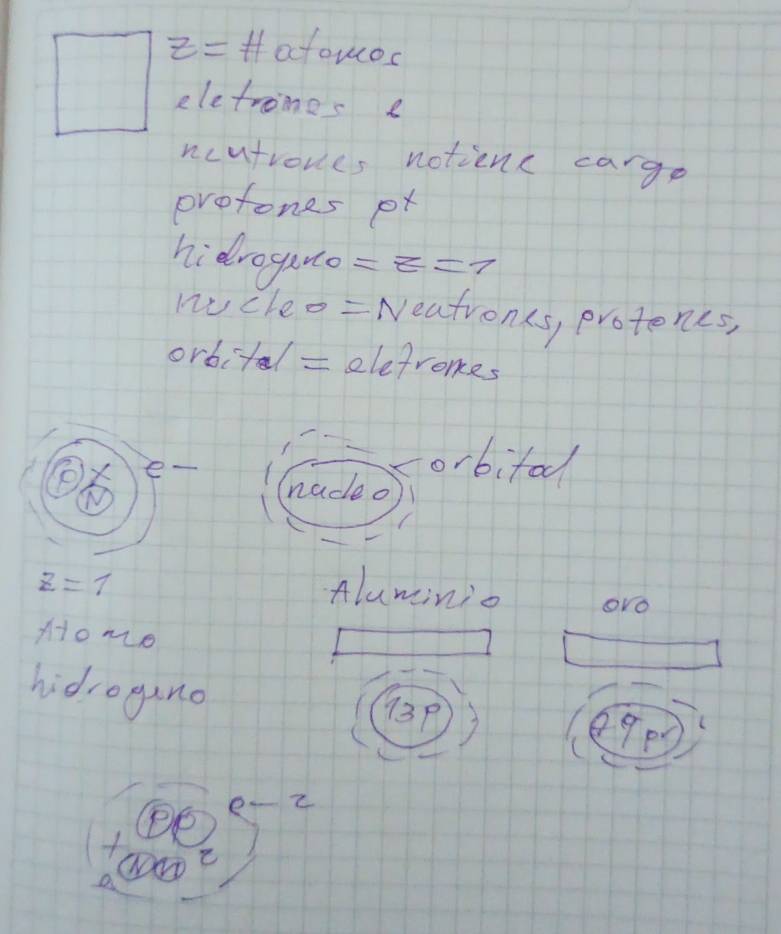 z = # atomos
eletrones e
neutrones notiene carga
protones p+
hidrogeno = z = 1
nucleo = Neutrones, protones,
orbital = eletrones
P + N e-
nucleo orbital
z = 1 Aluminio oro
Atomo
hidrogeno
13p 79 pr
P P e- 2
+ N n 2